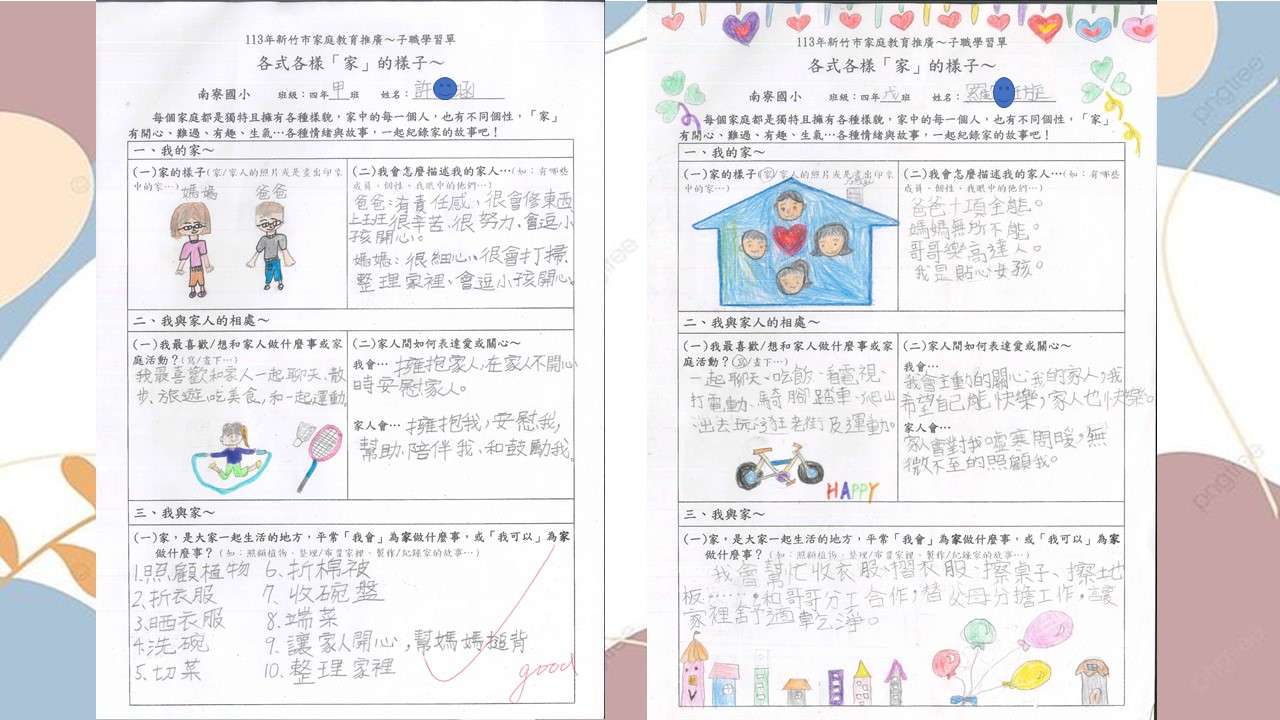 113年新竹市家庭教育推廣～子職學習單
各式各樣「家」的樣子～
南寮國小 班級：四年甲班 姓名：許 涵
每個家庭都是獨特且擁有各種樣貌，家中的每一個人，也有不同個性，「家」
有開心、難過、有趣、生氣…各種情緒與故事，一起紀錄家的故事吧！
一、我的家～
(一)家的樣子(家/家人的照片或是畫出印象
中的家…)
媽媽 爸爸
(二)我會怎麼描述我的家人…(如：有哪些
成員、個性、我眼中的他們…)
爸爸：有責任感、很會修東西
上班很辛苦、很努力、會逗小
孩開心。
媽媽：很細心、很會打掃、
整理家裡、會逗小孩開心。
二、我與家人的相處～
(一)我最喜歡/想和家人做什麼事或家
庭活動？(寫/畫下…)
我最喜歡和家人一起聊天、散
步、旅遊、吃美食，和一起運動
(二)家人間如何表達愛或關心～
我會…擁抱家人，在家人不開心
時安慰家人。
家人會…擁抱我，安慰我，
幫助、陪伴我、和鼓勵我。
三、我與家～
(一)家，是大家一起生活的地方，平常「我會」為家做什麼事，或「我可以」為家
做什麼事？(如：照顧植物、整理/布置家裡、製作/紀錄家的故事…)
1.照顧植物 6.折棉被
2.折衣服 7.收碗盤
3.晒衣服 8.端菜
4.洗碗 9.讓家人開心，幫媽媽搥背
5.切菜 10.整理家裡
good
113年新竹市家庭教育推廣～子職學習單
各式各樣「家」的樣子～
南寮國小 班級：四年戊班 姓名：羅
每個家庭都是獨特且擁有各種樣貌，家中的每一個人，也有不同個性，「家」
有開心、難過、有趣、生氣…各種情緒與故事，一起紀錄家的故事吧！
一、我的家～
(一)家的樣子(家/家人的照片或是畫出印象
中的家…)
(二)我會怎麼描述我的家人…(如：有哪些
成員、個性、我眼中的他們…)
爸爸十項全能。
媽媽無所不能。
哥哥樂高達人。
我是貼心女孩。
二、我與家人的相處～
(一)我最喜歡/想和家人做什麼事或家
庭活動？(寫/畫下…)
一起聊天、吃飯、看電視、
打電動、騎腳踏車、爬山
、出去玩、逛老街及運動。
HAPPY
(二)家人間如何表達愛或關心～
我會…
我會主動的關心我的家人，我
希望自己能快樂，家人也快樂。
家人會…
家會對我噓寒問暖，無
微不至的照顧我。
三、我與家～
(一)家，是大家一起生活的地方，平常「我會」為家做什麼事，或「我可以」為家
做什麼事？(如：照顧植物、整理/布置家裡、製作/紀錄家的故事…)
我會幫忙收衣服、摺衣服、擦桌子、擦地
板……，和哥哥分工合作，替父母分擔工作，讓
家裡舒適乾淨。
pngtree